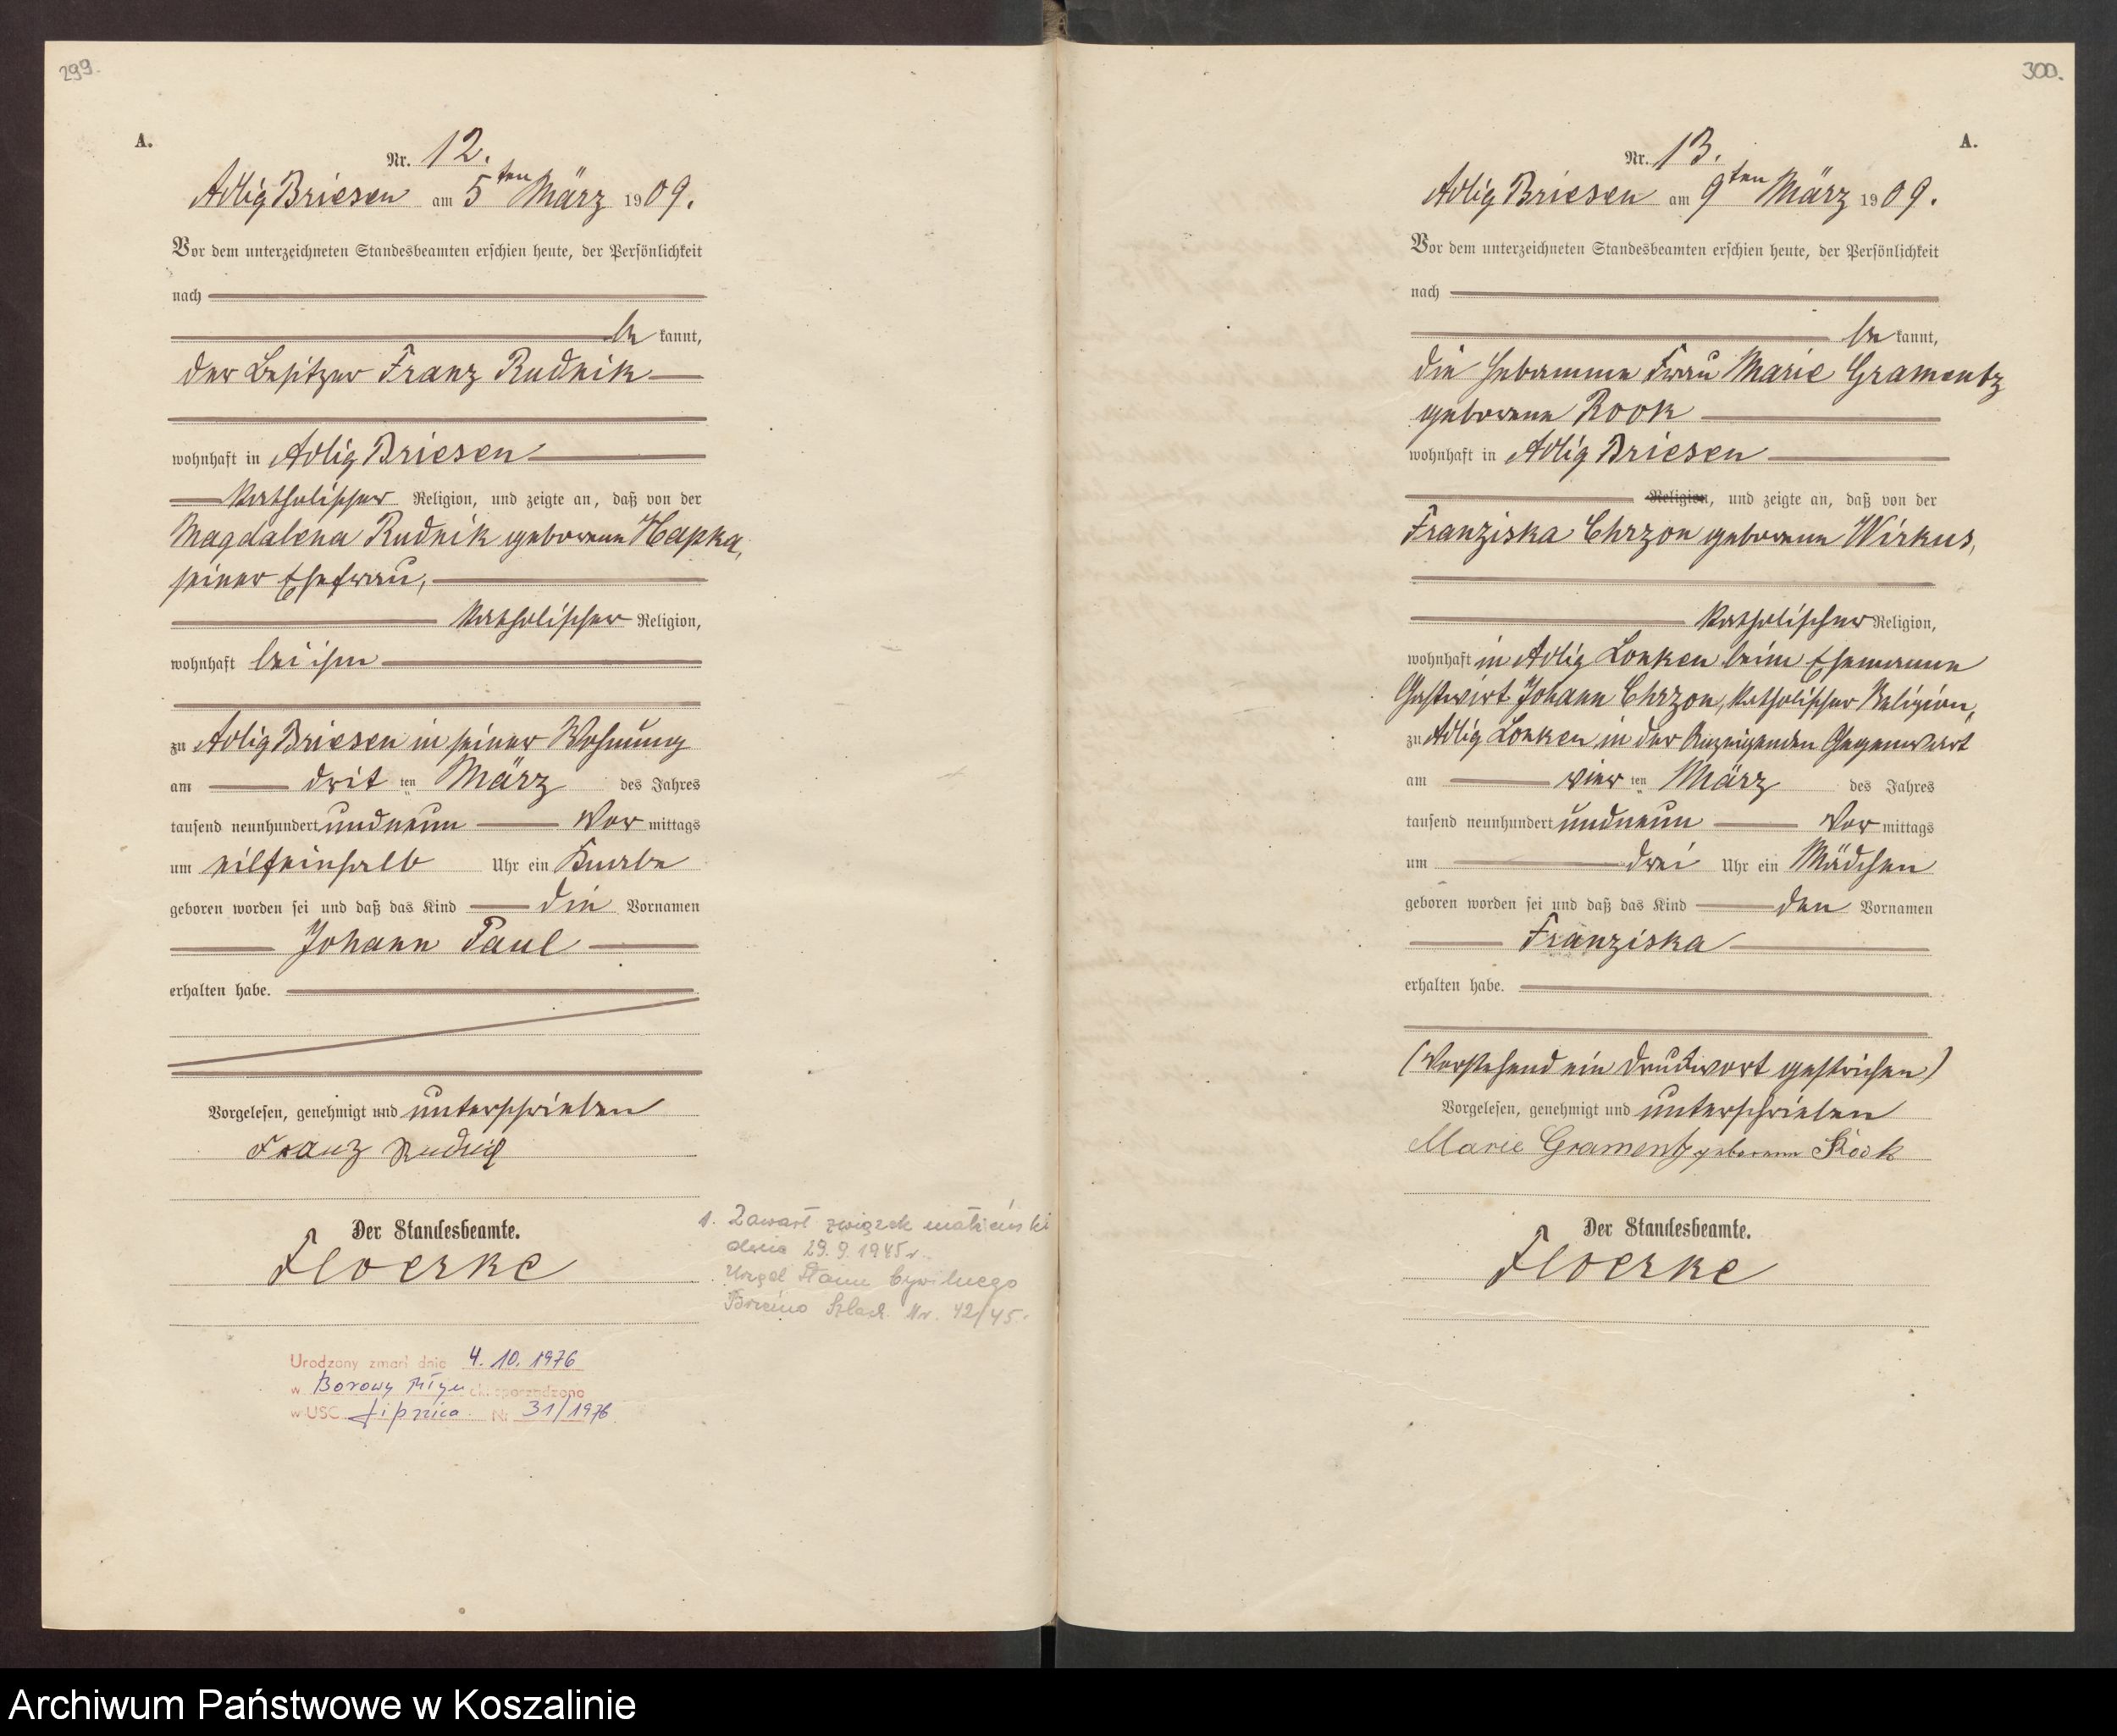 299.
A.
Nr. 12.
Adlig Briesen am 5ten März 1909.
Vor dem unterzeichneten Standesbeamten erschien heute, der Persönlichkeit
nach
be kannt,
der Besitzer Franz Rudnik
wohnhaft in Adlig Briesen
katholischer Religion, und zeigte an, daß von der
Magdalena Rudnik geborene Hapka,
seiner Ehefrau,
katholischer Religion,
wohnhaft bei ihm
zu Adlig Briesen in seiner Wohnung
am drit ten März des Jahres
tausend neunhundert undneun Vor mittags
um eilfeinhalb Uhr ein Knabe
geboren worden sei und daß das Kind die Vornamen
Johann Paul
erhalten habe.
Vorgelesen, genehmigt und unterschrieben
Franz Rudnik
Der Standesbeamte.
Floerke
1. Zawarł związek małżeński
dnia 29.9.1945 r.
Urząd Stanu Cywilnego
Brzeźno Szlach. Nr. 42/45.
Urodzony zmarł dnia 4. 10. 1976
w Borowy Młyn akt sporządzono
w USC Lipnica Nr 31/1976
300.
A.
Nr. 13.
Adlig Briesen am 9ten März 1909.
Vor dem unterzeichneten Standesbeamten erschien heute, der Persönlichkeit
nach
be kannt,
die Hebamme Frau Marie Gramentz
geborene Rook
wohnhaft in Adlig Briesen
Religion, und zeigte an, daß von der
Franziska Chrzon geborene Wirkus,
katholischer Religion,
wohnhaft in Adlig Lonken beim Ehemanne
Gastwirt Johann Chrzon, katholischer Religion,
zu Adlig Lonken in der Anzeigenden Gegenwart
am vier ten März des Jahres
tausend neunhundert undneun Vor mittags
um drei Uhr ein Mädchen
geboren worden sei und daß das Kind den Vornamen
Franziska
erhalten habe.
(Vorstehend ein Druckwort gestrichen)
Vorgelesen, genehmigt und unterschrieben
Marie Gramentz geborene Rook
Der Standesbeamte.
Floerke
Archiwum Państwowe w Koszalinie